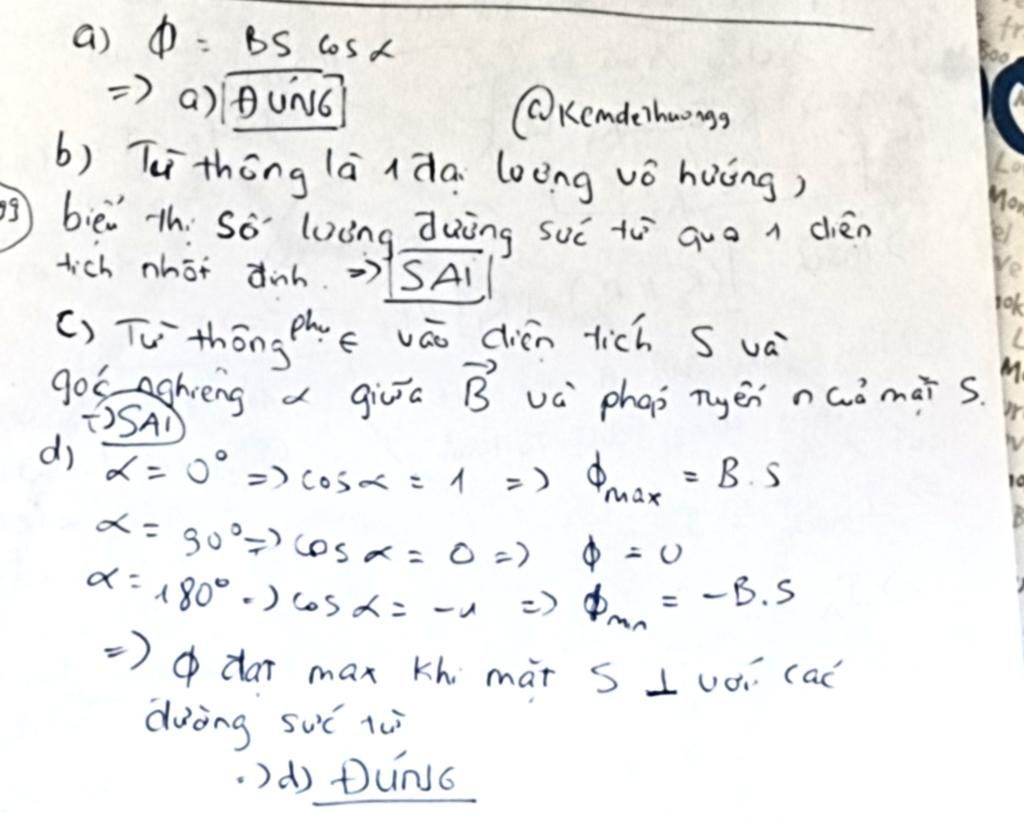 a) ϕ = BS cos α
=> a) ĐÚNG
@Kemde1huongg
b) Từ thông là 1 đại lượng vô hướng,
biểu thị số lượng đường sức từ qua 1 diện
tích nhất định. => SAI
c) Từ thông phụ ∈ vào diện tích S và
góc nghiêng α giữa B⃗ và pháp tuyến n của mặt S.
=> SAI
d) α = 0° => cos α = 1 => ϕmax = B.S
α = 90° => cos α = 0 => ϕ = 0
α = 180° => cos α = -1 => ϕmin = -B.S
=> ϕ đạt max khi mặt S ⊥ với các
đường sức từ
=> d) ĐÚNG